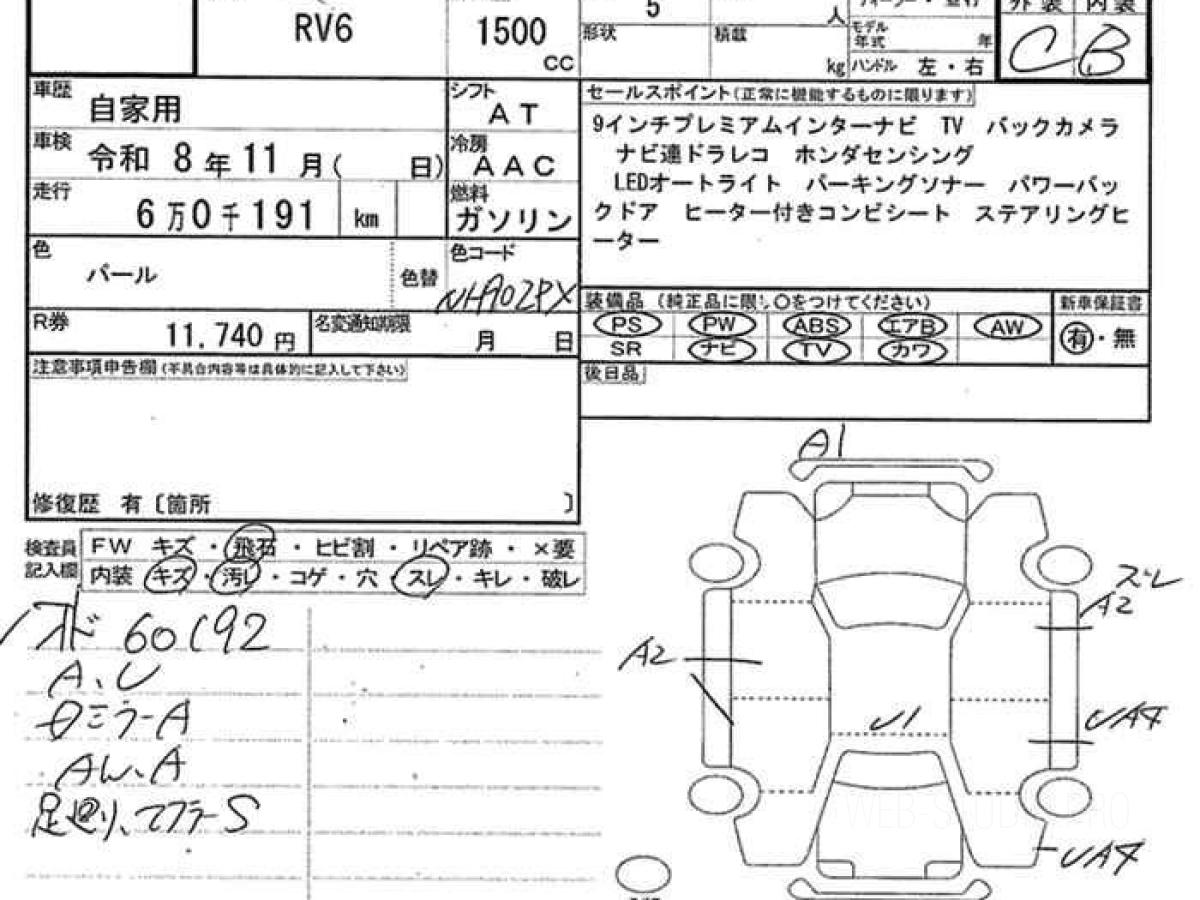 RV6
1500
CC
5
人
形状
積載
kg
モデル
年式
年
ハンドル 左・右
外装 内装
C B
車歴 自家用
シフト AT
車検 令和 8年11月( 日)
冷房 AAC
走行 6万0千191 km
燃料 ガソリン
色 パール
色替
色コード NH902PX
R券 11,740円
名変通知期限 月 日
注意事項申告欄(不具合内容等は具体的に記入して下さい)
修復歴 有〔箇所 〕
セールスポイント(正常に機能するものに限ります)
9インチプレミアムインターナビ TV バックカメラ
ナビ連ドラレコ ホンダセンシング
LEDオートライト パーキングソナー パワーバッ
クドア ヒーター付きコンビシート ステアリングヒ
ーター
装備品(純正品に限り、〇をつけてください)
新車保証書
PS PW ABS エアB AW
有・無
SR ナビ TV カワ
後日品
検査員
記入欄
FW キズ・飛石・ヒビ割・リペア跡・×要
内装 キズ・汚レ・コゲ・穴・スレ・キレ・破レ
60192
A、U
ミラーA
AW、A
足廻り、マフラーS
A1
スレ
A2
A2
UA4
U1
UA4
WEB-STUDIO.PRO